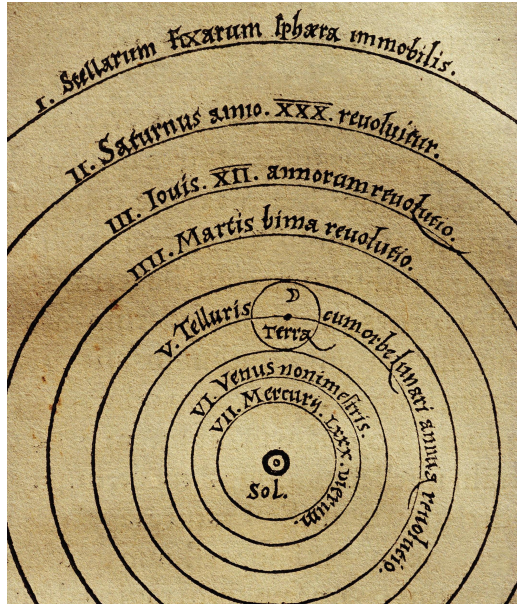 I. Stellarum Fixarum sphæra immobilis.
II. Saturnus anno. XXX. reuoluitur.
III. Iouis. XII. annorum reuolutio.
IIII. Martis bima reuolutio.
V. Telluris cum orbe lunari annua reuolutio.
Terra
VI. Venus nonimestris.
VII. Mercurij. Lxxx. dierum.
Sol.